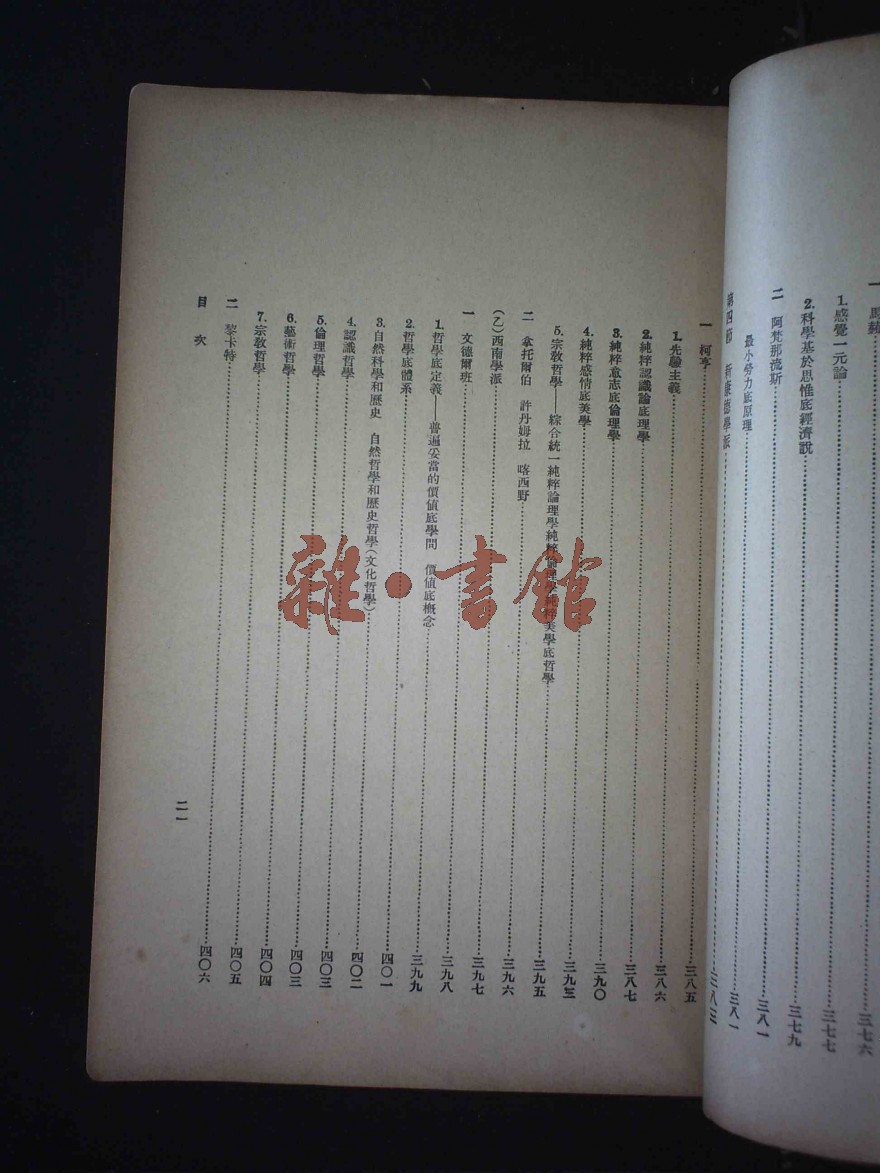 1.感覺一元論……三七七
2.科學基於思惟底經濟說……三七九
二 阿梵那流斯……三八一
最小勞力底原理……三八一
第四節 新康德學派……三八三
一 柯亨……三八五
1.先驗主義……三八六
2.純粹認識論底論理學……三八七
3.純粹意志底倫理學……三九〇
4.純粹感情底美學……三九三
5.宗教哲學——綜合統一純粹論理學純粹倫理學純粹美學底哲學……三九五
二 拿托爾伯 許丹姆拉 喀西野……三九六
(乙)西南學派……三九七
一 文德爾班……三九八
1.哲學底定義——普遍妥當的價值底學問 價值底概念……三九九
2.哲學底體系……四〇一
3.自然科學和歷史 自然哲學和歷史哲學(文化哲學)……四〇二
4.認識哲學……四〇三
5.倫理哲學……四〇三
6.藝術哲學……四〇四
7.宗教哲學……四〇五
二 黎卡特……四〇六
目次
二一
雜·書館